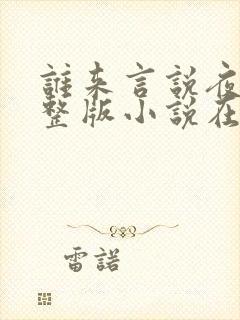 誰来言說夜
整版小說在
雷諾